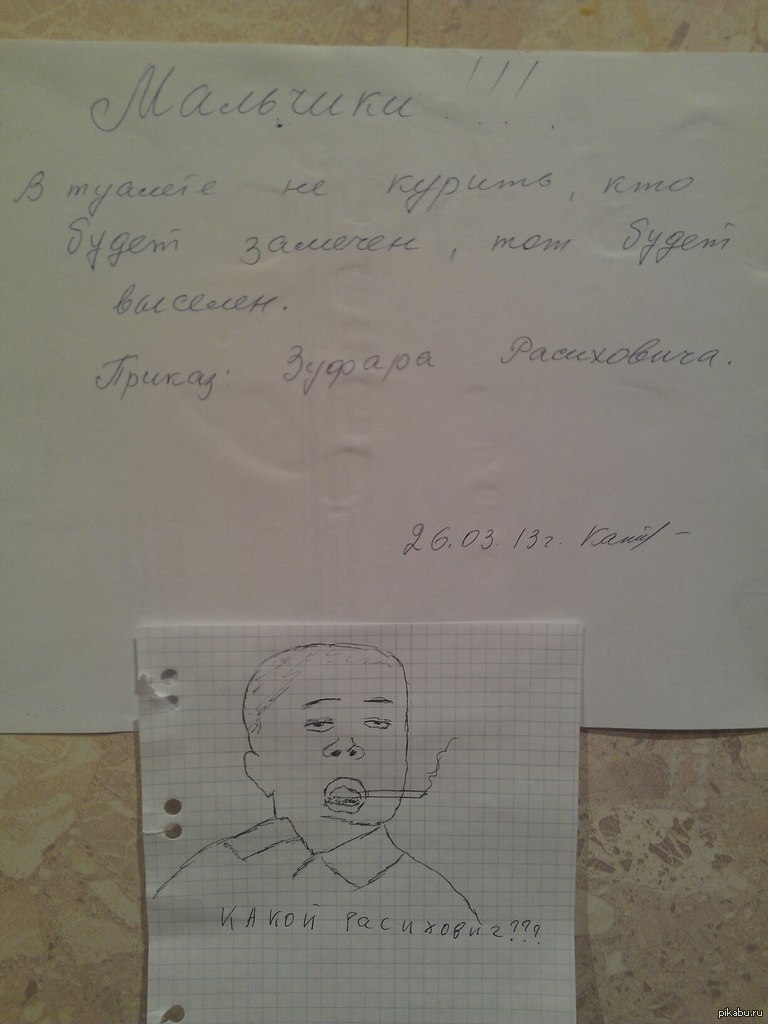 Мальчики !!!
В туалете не курить, кто
будет замечен, тот будет
выселен.
Приказ: Зуфара Расиховича.
26.03.13г.
КАКОЙ РАСИХОВИЧ???
pikabu.ru